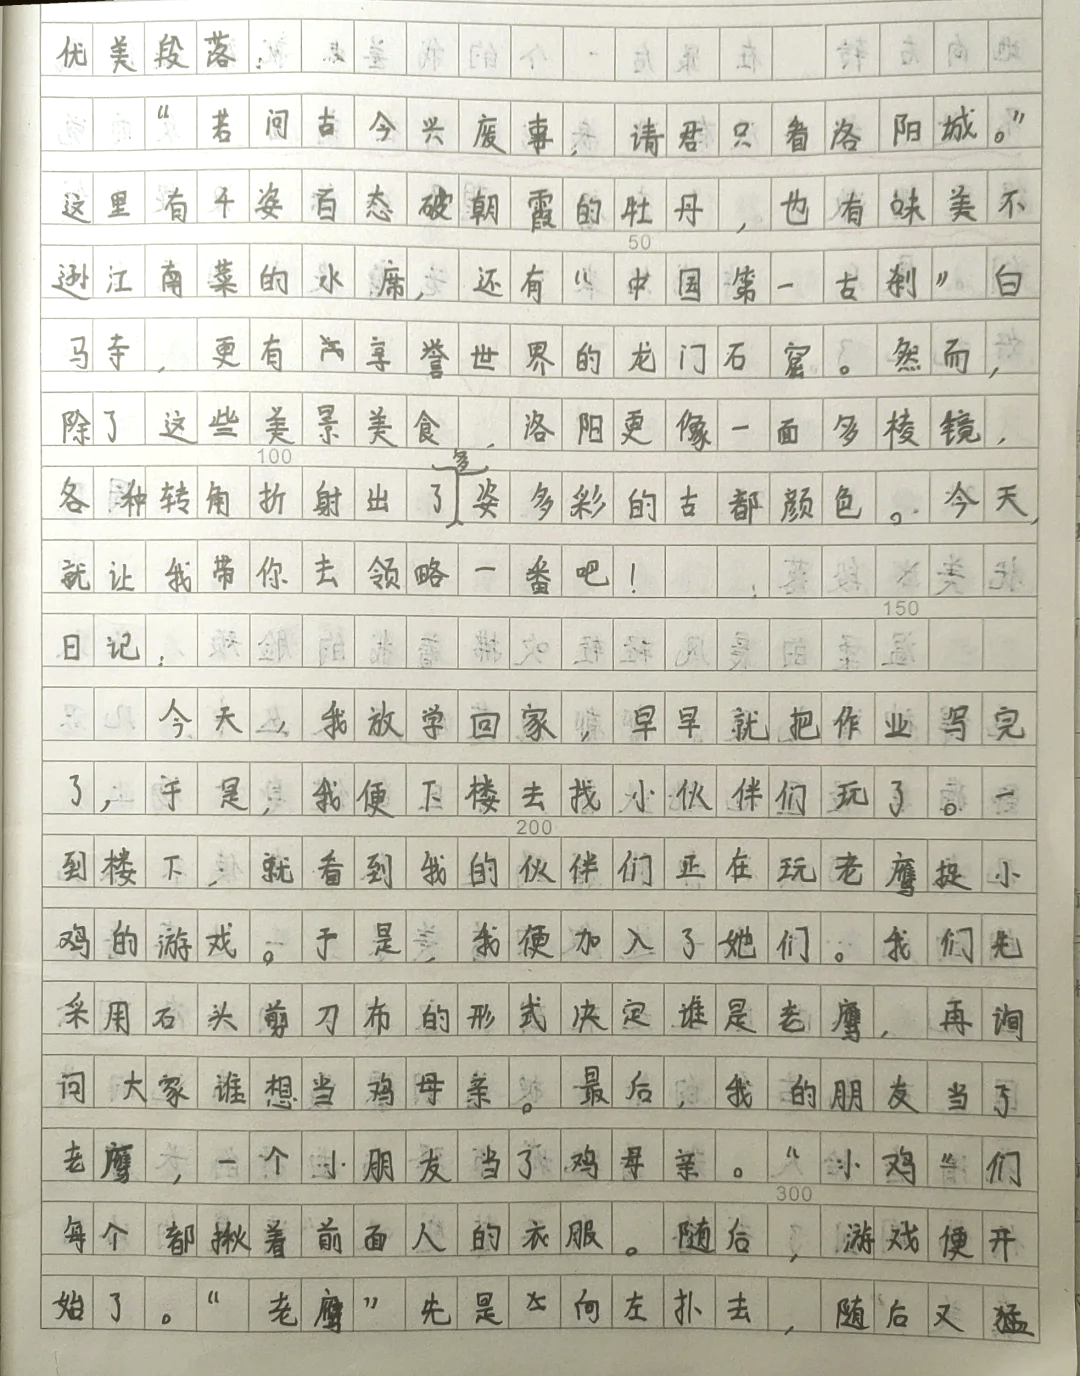 优美段落：
“若问古今兴废事，请君只看洛阳城。”
这里有千姿百态破朝霞的牡丹，也有味美不
50
逊江南菜的水席，还有“中国第一古刹”白
马寺，更有享誉世界的龙门石窟。然而，
除了这些美景美食，洛阳更像一面多棱镜，
100
各种转角折射出了多姿多彩的古都颜色。今天，
就让我带你去领略一番吧！
150
日记：
今天，我放学回家，早早就把作业写完
了，于是，我便下楼去找小伙伴们玩了。一
200
到楼下，就看到我的伙伴们正在玩老鹰捉小
鸡的游戏。于是，我便加入了她们。我们先
采用石头剪刀布的形式决定谁是老鹰，再询
问大家谁想当鸡母亲。最后，我的朋友当了
老鹰，一个小朋友当了鸡母亲。“小鸡”们
300
每个都揪着前面人的衣服。随后，游戏便开
始了。“老鹰”先是向左扑去，随后又猛